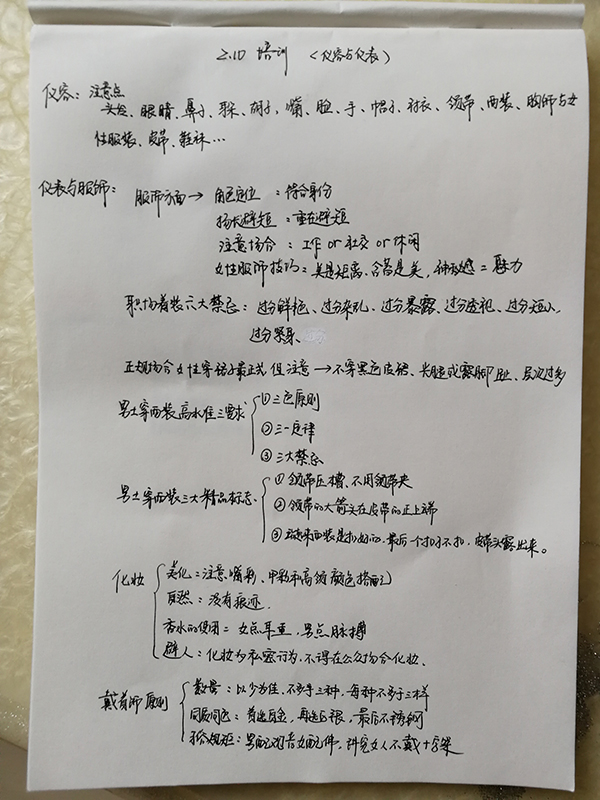 2.10 培训 (仪容与仪表)
仪容: 注意点
头发、眼睛、鼻子、耳朵、胡子、嘴、脸、手、帽子、衬衣、领带、西装、胸饰与女
性服装、皮带、鞋袜…
仪表与服饰: 服饰方面→ 角色定位:符合身份
扬长避短:重在避短
注意场合:工作 or 社交 or 休闲
女性服饰技巧=美是距离、含蓄是美,神秘感=魅力
职场着装六大禁忌:过分鲜艳、过分杂乱、过分暴露、过分透视、过分短小
过分紧身.
正规场合女性穿裙子最正式 但注意→不穿黑色皮裙、光腿或露脚趾、层次过多
男士穿西装高水准三要求 ①三色原则
②三一定律
③三大禁忌
男士穿西装三大精品标志. ①领带压槽、不用领带夹
②领带的大箭头在皮带的正上端
③ 西装是扣好的,最后一个扣不扣,皮带头露出来。
化妆 美化:注意嘴彩、甲彩和高级颜色搭配
自然:没有痕迹.
香水的使用=女点耳垂,男点脉搏
避人:化妆为私密行为,不得在公众场合化妆、
戴首饰原则 数量:以少为佳,不多于三种,每种不多于三样
同质同色:首选白色,再选白银,最后不锈钢
符合规矩:男配 女配件,讲究女人不戴十字架